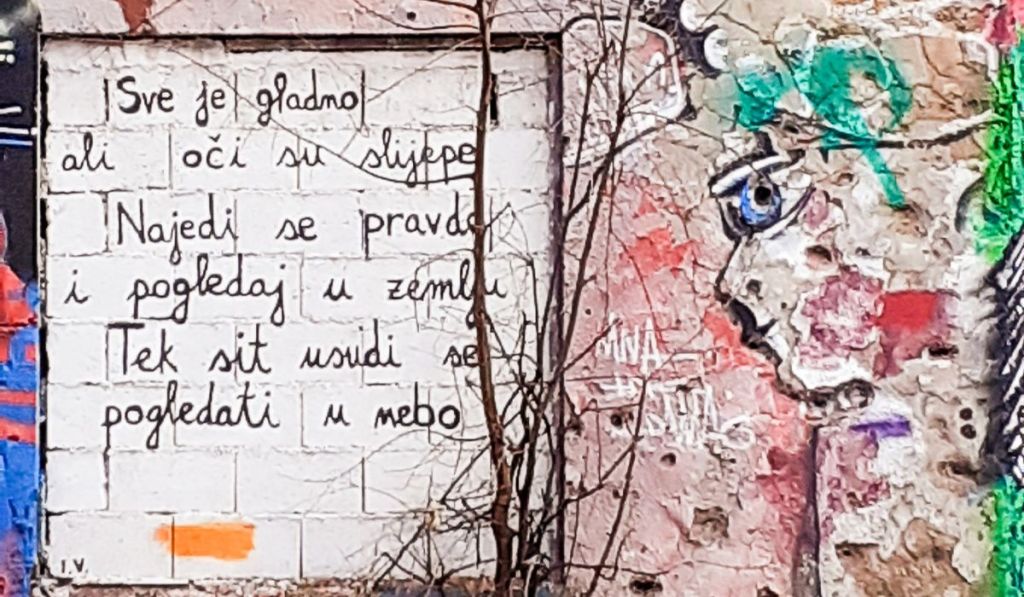 Sve je gladno
ali oči su slijepe
Najedi se pravde
i pogledaj u zemlju
Tek sit usudi se
pogledati u nebo
I.V.